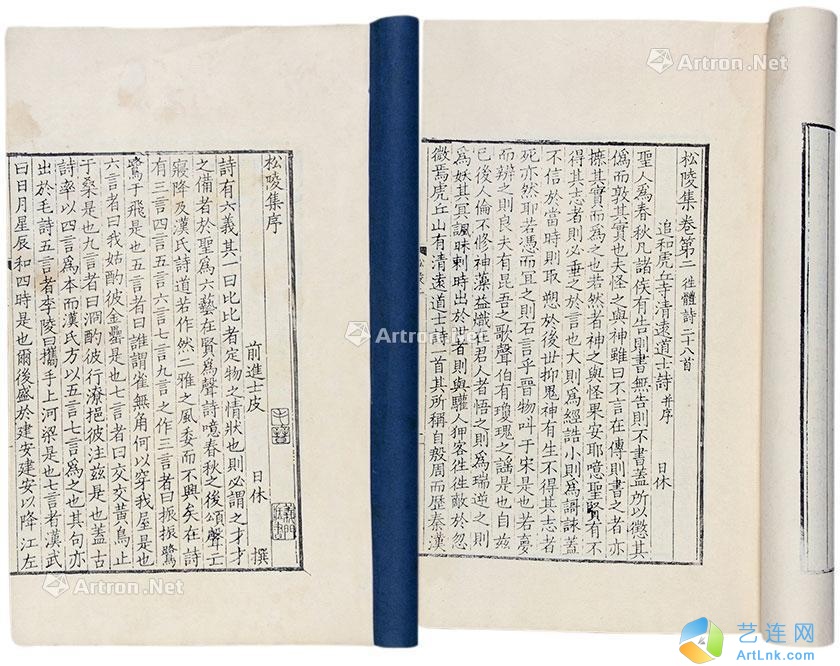 松陵集卷第二 徃體詩二十八首
追和虎丘寺清遠道士詩 并序 日休
聖人為春秋凡諸侯有生則書無告則不書蓋所以懲其
偽而敦其實也夫怪之與神雖曰不言在傳則書之者亦
摭其實而為之也若然者神之與怪果安耶噫聖賢有不
得其志者則必垂之於言也大則為經誥小則為謌詠蓋
不信於當時則取愬於後世抑鬼神有生不得其志者
死亦然耶若憑而冝之則石言乎晉物叫于宋是也若夢
而辨之則良夫有昆吾之歌聲伯有瓊瑰之謡是也自兹
已後人倫不修神藻益熾在君人者悟之則為瑞逆之則
為妖其冥諷昧刺時出於世者則與騷人狎客徃徃敵於忽
微焉虎丘山有清遠道士詩一首其所稱自殷周而歷秦漢
松陵集序
前進士皮 日休 撰
詩有六義其一曰比比者定物之情狀也則必謂之才才
之備者於聖為六藝在賢為聲詩噫春秋之後頌聲亡
寢降及漢氏詩道若作然二雅之風委而不興矣在詩
有三言四言五言六言七言九言之作三言者曰振振鷺
鷺于飛是也五言者曰誰謂雀無角何以穿我屋是也
六言者曰我姑酌彼金罍是也七言者曰交交黃鳥止
于桑是也九言者曰洞酌彼行潦挹彼注兹是也蓋古
詩率以四言為本而漢氏方以五言七言為之也其句亦
出於毛詩五言者李陵曰攜手上河梁是也七言者漢武
曰日月星辰和四時是也爾後盛於建安建安以降江左
Artron.Net
Artron.Net
Artron.Net
Artron.Net
Artron.Net
艺连网
ArtLnk.com